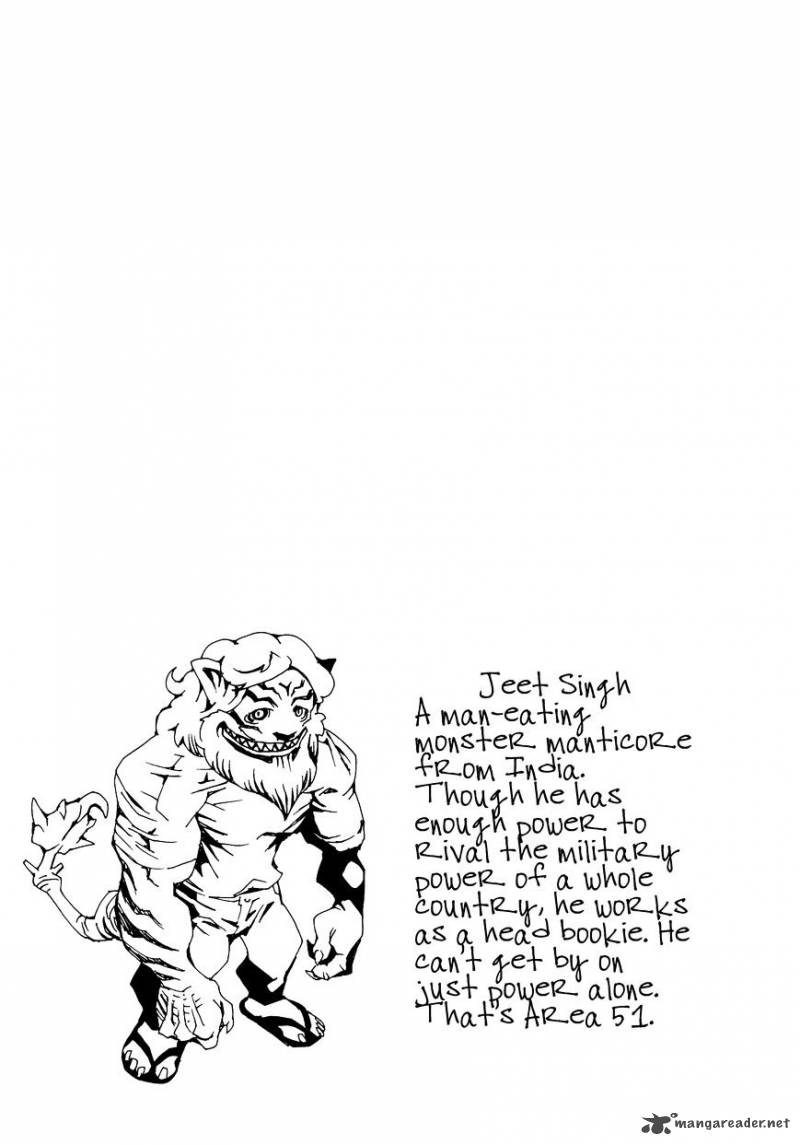 Jeet Singh
A man-eating
monster manticore
from India.
Though he has
enough power to
rival the military
power of a whole
country, he works
as a head bookie. He
can't get by on
just power alone.
That's Area 51.
mangareader.net